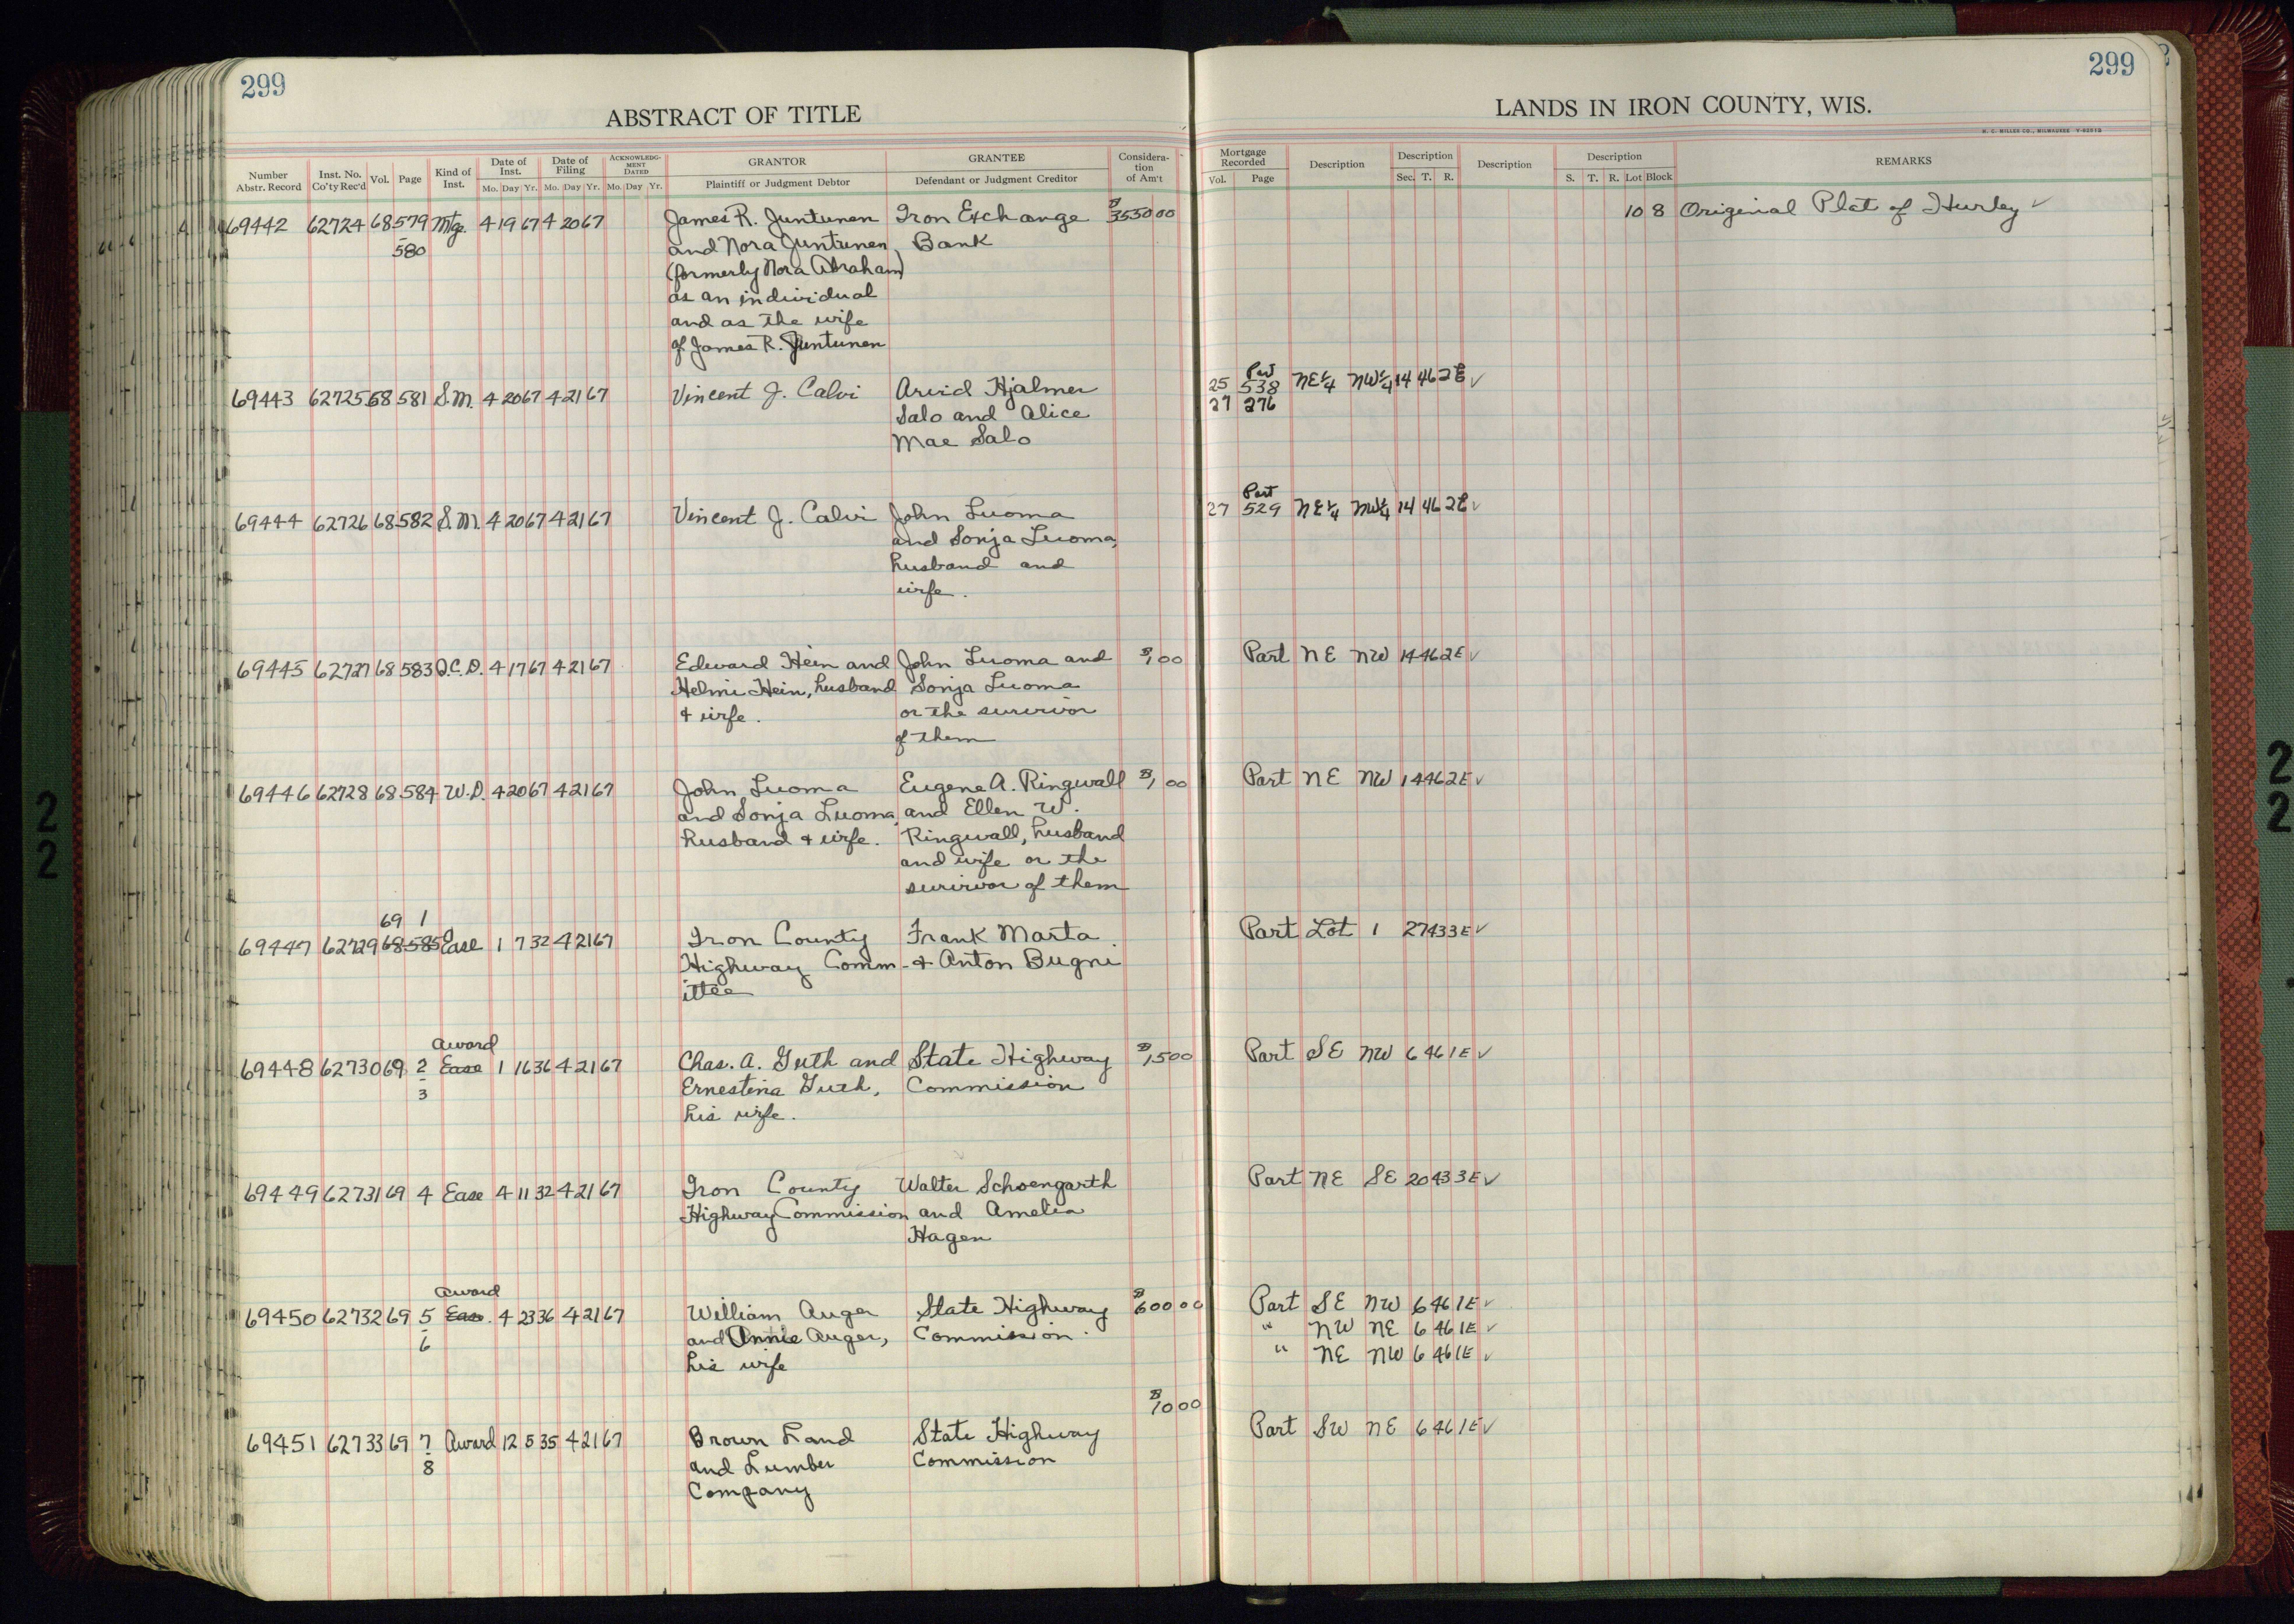 299
ABSTRACT OF TITLE
Number Abstr. Record | Inst. No. Co'ty Rec'd | Vol. | Page | Kind of Inst. | Date of Inst. Mo. Day Yr. | Date of Filing Mo. Day Yr. | ACKNOWLEDGMENT DATED Mo. Day Yr. | GRANTOR Plaintiff or Judgment Debtor | GRANTEE Defendant or Judgment Creditor | Consideration of Am't
69442 62724 68 579 Mtg. 4 19 67 4 20 67 James R. Juntunen Iron Exchange $3550 00
580 and Nora Juntunen, Bank
(formerly Nora Abraham)
as an individual
and as the wife
of James R. Juntunen
69443 62725 68 581 S.M. 4 20 67 4 21 67 Vincent J. Calvi Arvid Hjalmer
Salo and Alice
Mae Salo
69444 62726 68 582 S.M. 4 20 67 4 21 67 Vincent J. Calvi John Luoma
and Sonja Luoma,
husband and
wife.
69445 62727 68 583 Q.C.D. 4 17 67 4 21 67 Edward Hein and John Luoma and $1 00
Helmi Hein, husband Sonja Luoma
& wife. or the survivor
of them
69446 62728 68 584 W.D. 4 20 67 4 21 67 John Luoma Eugene A. Ringwall $1 00
and Sonja Luoma, and Ellen W.
husband & wife. Ringwall, husband
and wife or the
survivor of them
69 1
69447 62729 68 585 Ease 1 7 32 4 21 67 Iron County Frank Marta
Highway Comm- & Anton Bugni
ittee
Award
69448 62730 69 2 Ease 1 16 36 4 21 67 Chas. A. Guth and State Highway $15 00
3 Ernestina Guth, Commission
his wife.
69449 62731 69 4 Ease 4 11 32 4 21 67 Iron County Walter Schoengarth
Highway Commission and Amelia
Hagen
Award
69450 62732 69 5 Ease. 4 23 36 4 21 67 William Auger State Highway $600 00
6 and Annie Auger, Commission.
his wife
$10 00
69451 62733 69 7 Award 12 5 35 4 21 67 Brown Land State Highway
8 and Lumber Commission
Company
299
LANDS IN IRON COUNTY, WIS.
H. C. MILLER CO., MILWAUKEE
Mortgage Recorded Vol. Page | Description | Description Sec. T. R. | Description | Description S. T. R. Lot Block | REMARKS
10 8 Original Plat of Hurley ✓
Part
25 538 NE¼ NW¼ 14 46 2E ✓
27 276
Part
27 529 NE¼ NW¼ 14 46 2E ✓
Part NE NW 14 46 2E ✓
Part NE NW 14 46 2E ✓
Part Lot 1 27 43 3E ✓
Part SE NW 6 46 1E ✓
Part NE SE 20 43 3E ✓
Part SE NW 6 46 1E ✓
" NW NE 6 46 1E ✓
" NE NW 6 46 1E ✓
Part SW NE 6 46 1E ✓
22
22